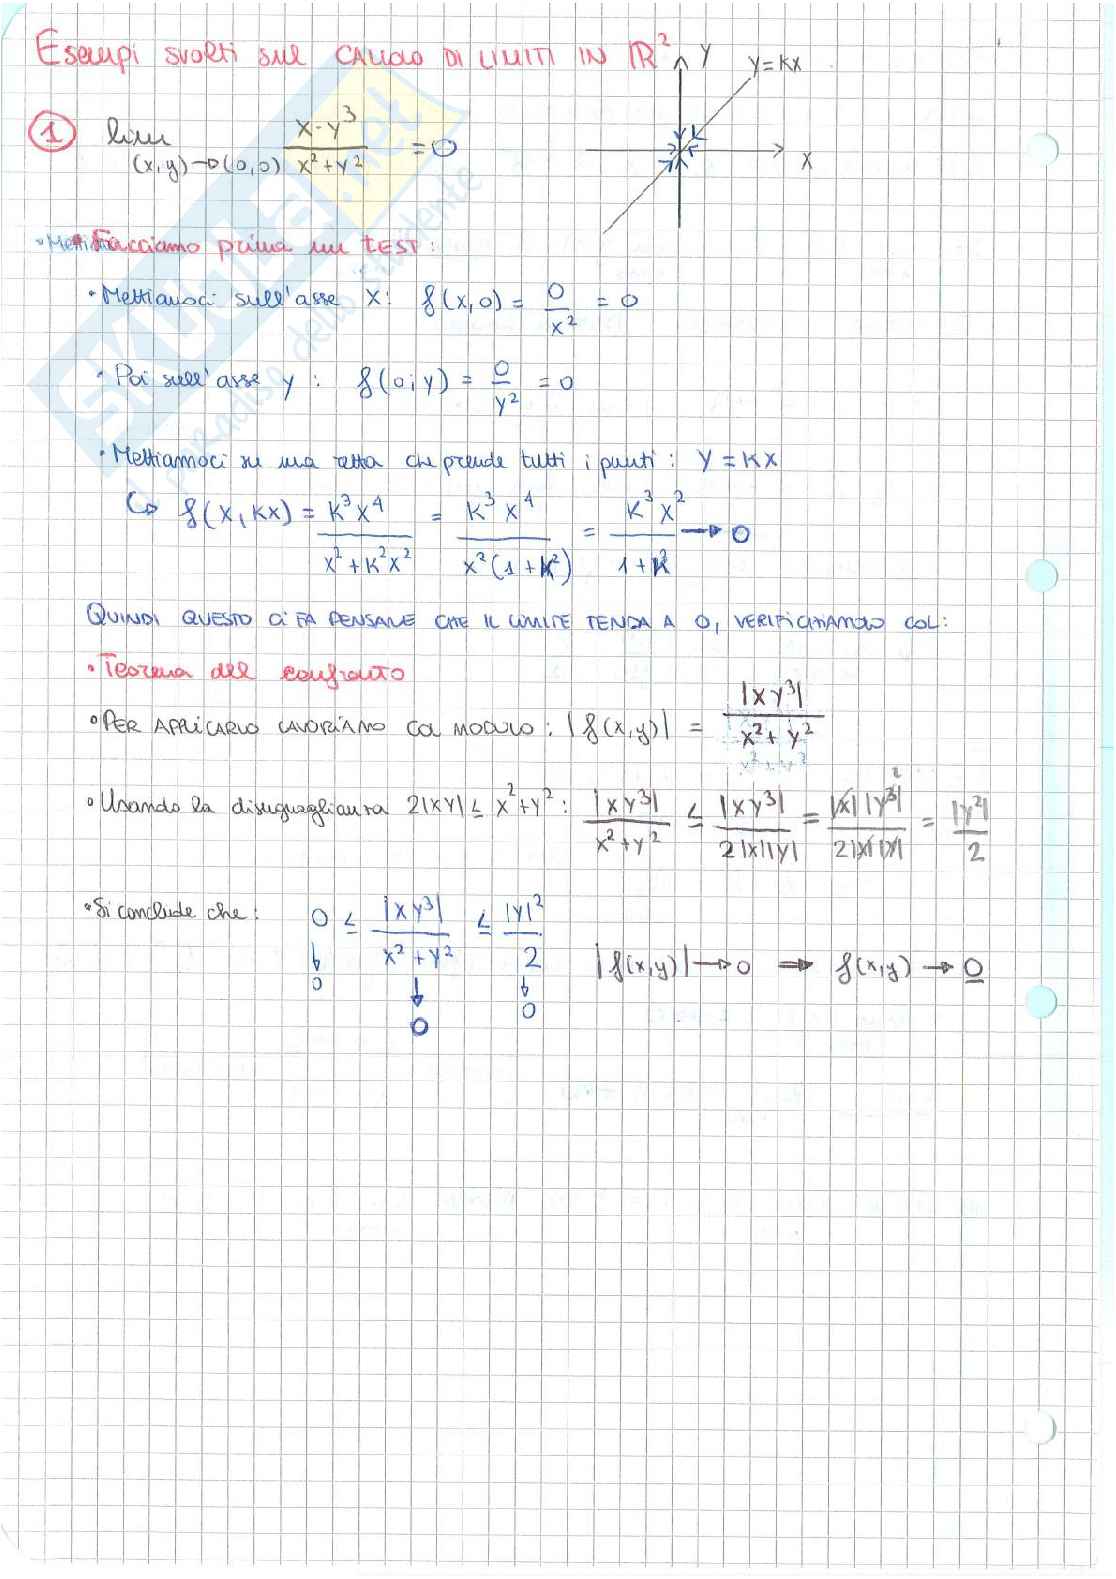 Esempi svolti sul CALCOLO DI LIMITI IN ℝ²
Y
Y=KX
X
① lim (x,y)→(0,0) x·y³ / x²+y² = 0
• Facciamo prima un TEST:
• Mettiamoci sull'asse X: f(x,0) = 0/x² = 0
• Poi sull'asse y: f(0;y) = 0/y² = 0
• Mettiamoci su una retta che prende tutti i punti: Y = KX
↳ f(x,kx) = K³X⁴ / x²+K²x² = K³X⁴ / x²(1+K²) = K³X² / 1+K² → 0
QUINDI QUESTO CI FA PENSARE CHE IL LIMITE TENDA A 0, VERIFICHIAMOLO COL:
• Teorema del confronto
• PER APPLICARLO LAVORIAMO COL MODULO: |f(x,y)| = |xy³| / x²+y²
• Usando la disuguaglianza 2|XY| ≤ x²+y²: |xy³| / x²+y² ≤ |xy³| / 2|x||y| = |x||y³| / 2|x||y| = |y²| / 2
• Si conclude che: 0 ≤ |xy³| / x²+y² ≤ |y|² / 2
↓ 0 ↓ 0 ↓ 0
|f(x,y)| → 0 ⇒ f(x,y) → 0
SKUOLA.net
il paradiso dello studente